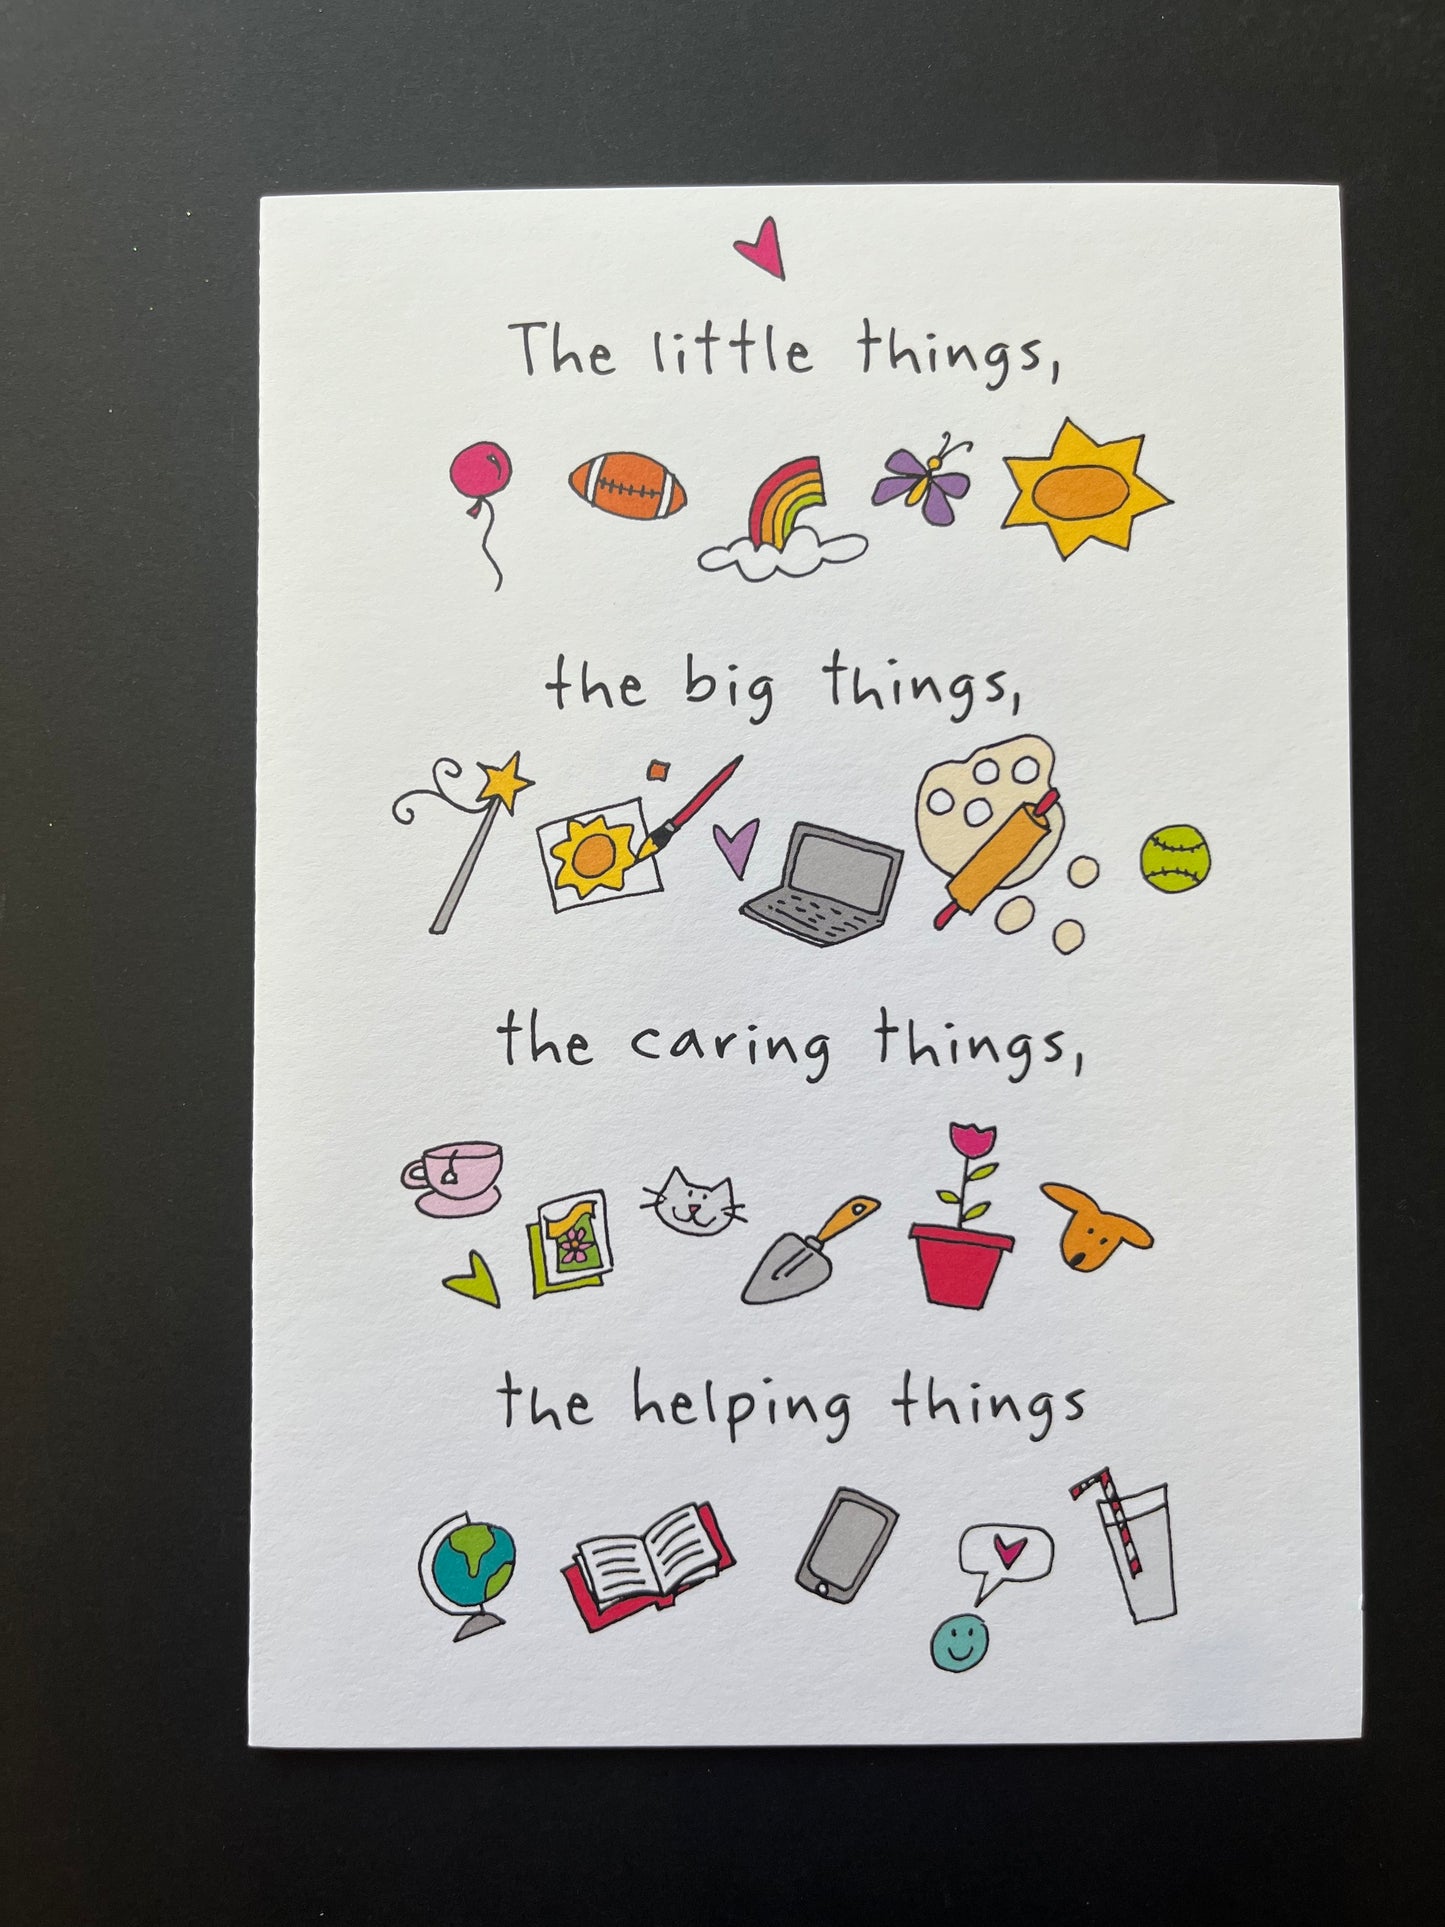 The little things,
the big things,
the caring things,
the helping things